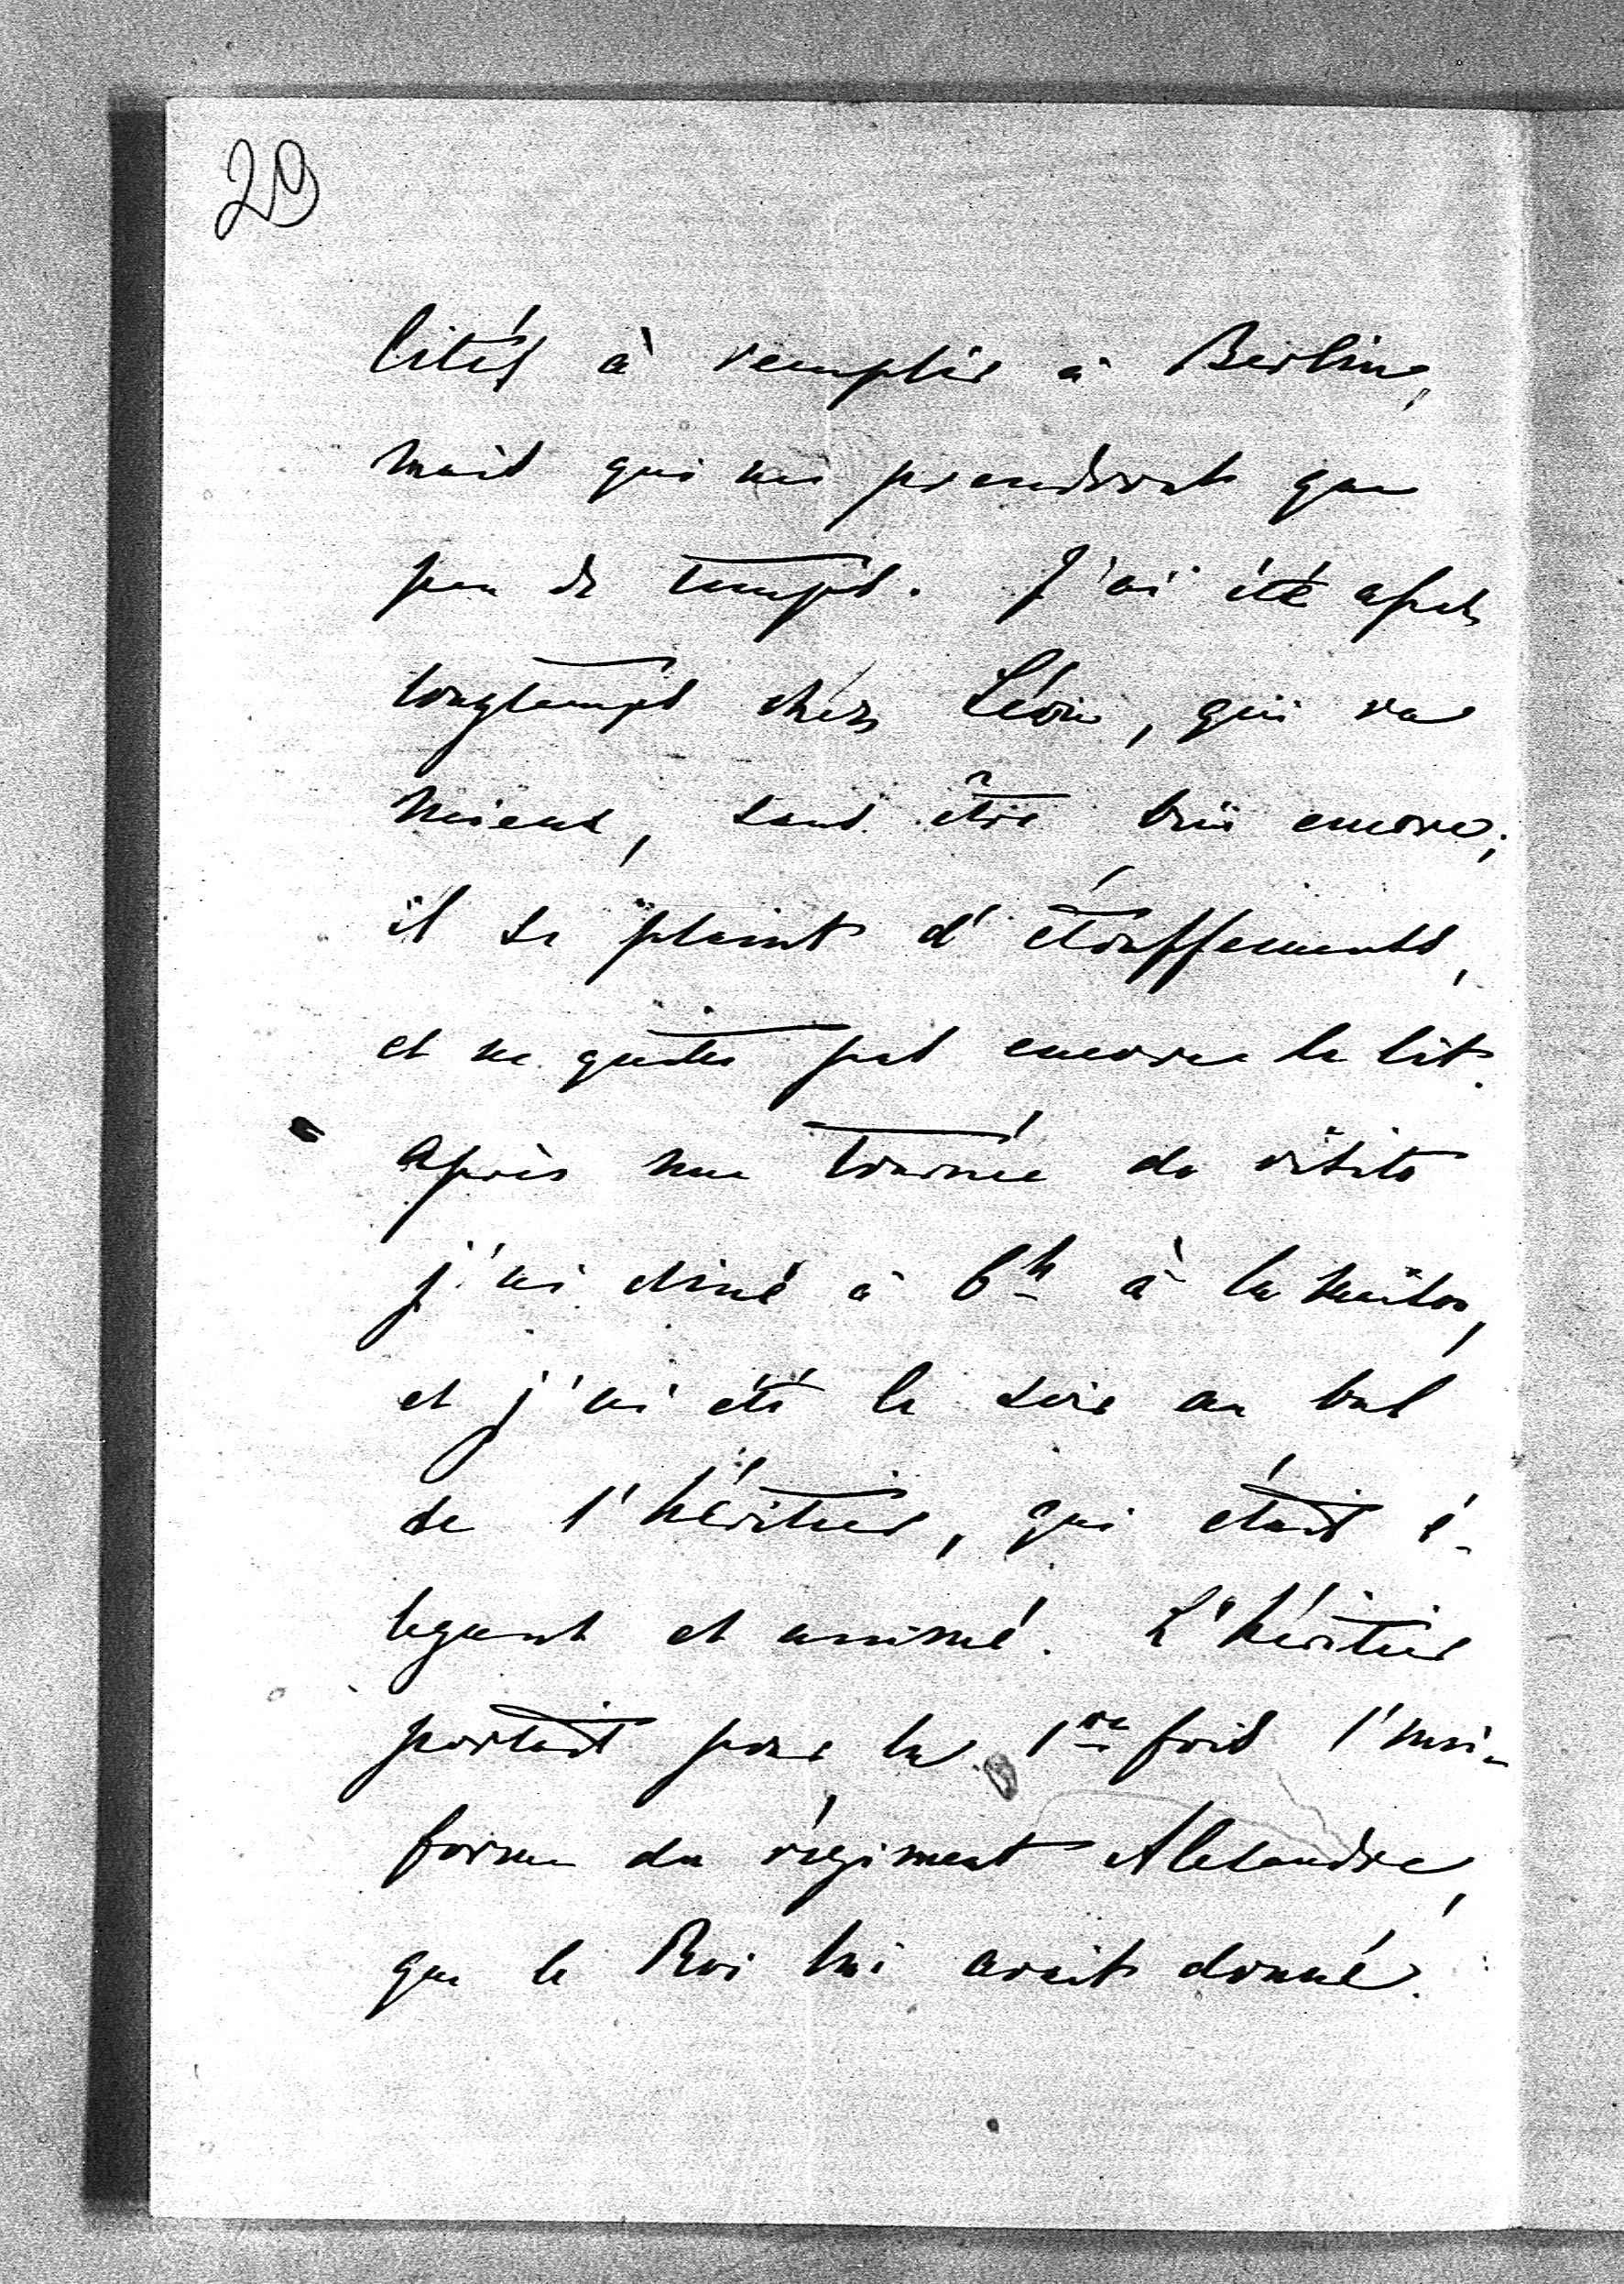 29
lités à remplir à Berlin,
mais qui ne prendront que
peu de temps. J'ai été après
longtemps chez Léon, qui va
mieux, sans être bien encore;
il se plaint d'étouffements,
et ne quitte pas encore le lit.
Après une tournée de visites
j'ai diné à 6h à la maison,
et j'ai été le soir au bal
de l'héritier, qui était é-
legant et animé. L'héritier
portait pour la 1re fois l'uni-
forme du régiment Alexandre,
que le Roi lui avait donné.